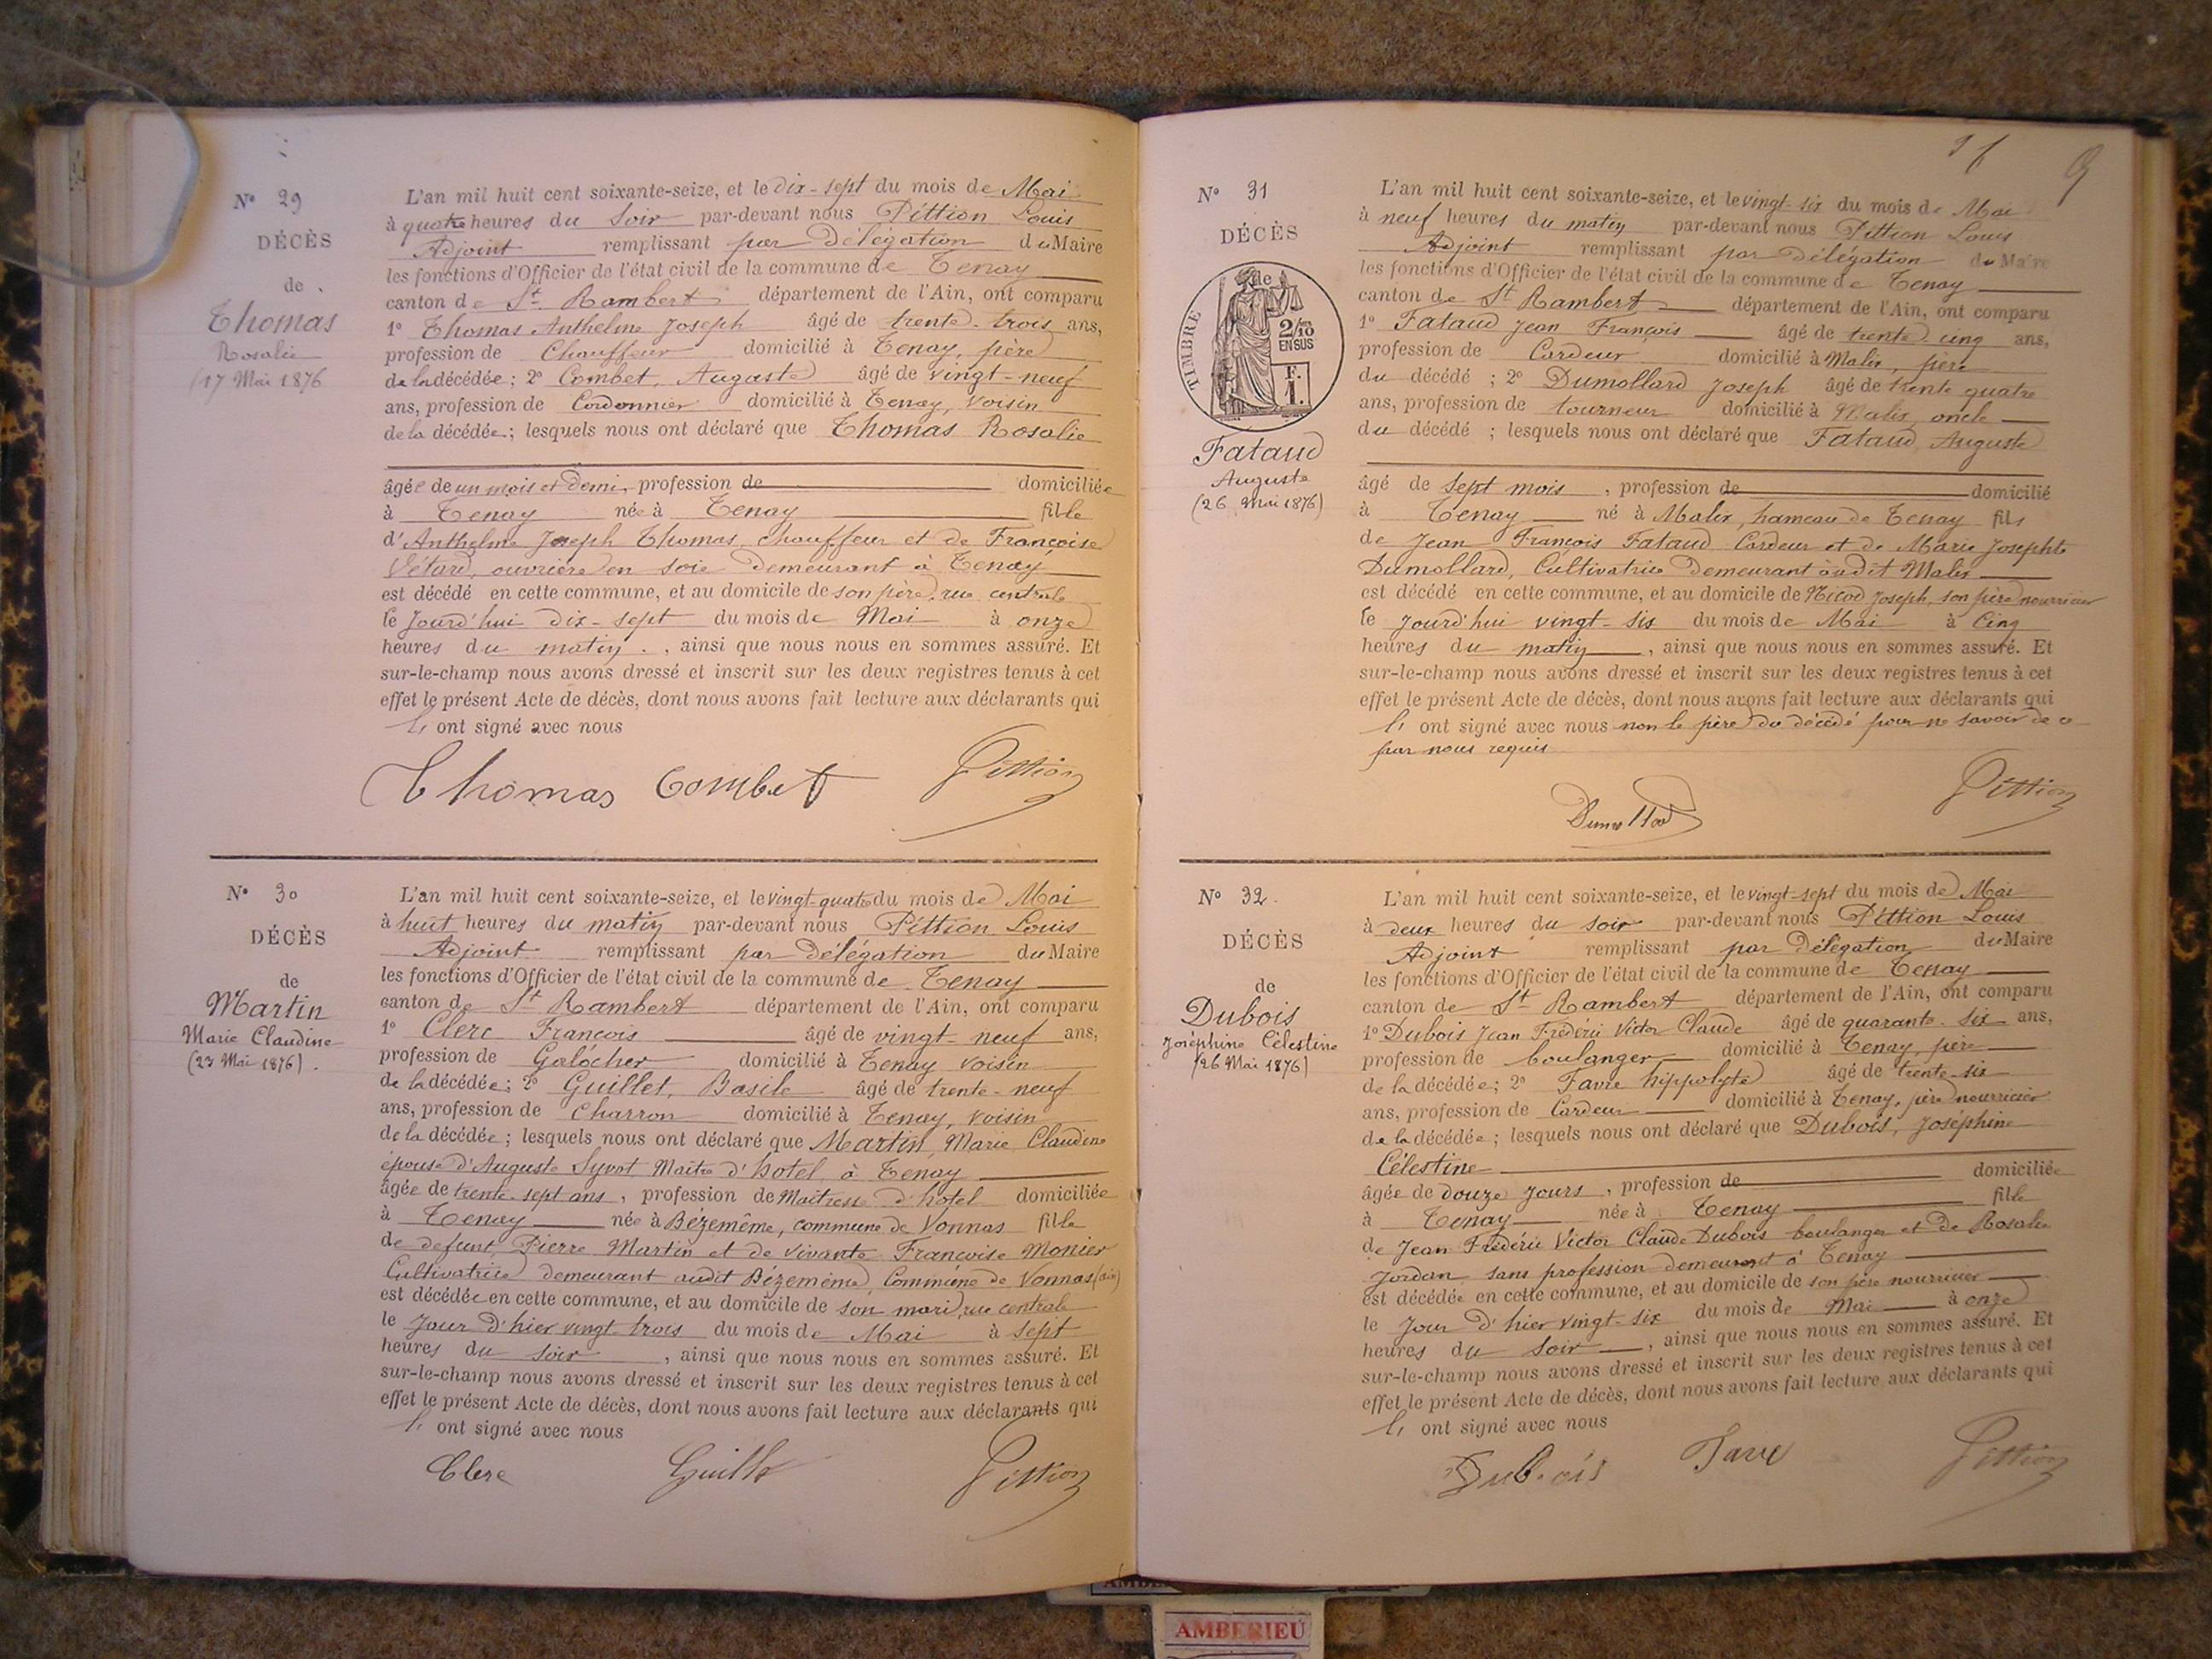 N° 29
DÉCÈS
de
Thomas
Rosalie
(17 Mai 1876
L'an mil huit cent soixante-seize, et le dix-sept du mois de Mai
à quatre heures du Soir par-devant nous Pittion Louis
Adjoint remplissant par Délégation du Maire
les fonctions d'Officier de l'état civil de la commune de Tenay
canton de St Rambert département de l'Ain, ont comparu
1° Thomas Anthelme Joseph âgé de trente-trois ans,
profession de Chauffeur domicilié à Tenay, père
de la décédée; 2° Combet, Auguste âgé de vingt-neuf
ans, profession de Cordonnier domicilié à Tenay, voisin
de la décédée; lesquels nous ont déclaré que Thomas Rosalie
âgée de un mois et demi, profession de domiciliée
à Tenay née à Tenay fille
d'Anthelme Joseph Thomas, chauffeur et de Françoise
Vétard, ouvrière en soie demeurant à Tenay
est décédé en cette commune, et au domicile de son père, rue centrale
le Jourd'hui dix-sept du mois de Mai à onze
heures du matin, ainsi que nous nous en sommes assuré. Et
sur-le-champ nous avons dressé et inscrit sur les deux registres tenus à cet
effet le présent Acte de décès, dont nous avons fait lecture aux déclarants qui
ont signé avec nous
Thomas Combet Pittion
N° 30
DÉCÈS
de
Martin
Marie Claudine
(23 Mai 1876).
L'an mil huit cent soixante-seize, et le vingt-quatre du mois de Mai
à huit heures du matin par-devant nous Pittion Louis
Adjoint remplissant par Délégation du Maire
les fonctions d'Officier de l'état civil de la commune de Tenay
canton de St Rambert département de l'Ain, ont comparu
1° Clerc François âgé de vingt-neuf ans,
profession de Galocher domicilié à Tenay voisin
de la décédée; 2° Guillet, Basile âgé de trente-neuf
ans, profession de Charron domicilié à Tenay, voisin
de la décédée; lesquels nous ont déclaré que Martin, Marie Claudine
épouse d'Auguste Syvot Maître d'hotel à Tenay
âgée de trente-sept ans, profession de Maîtresse d'hotel domiciliée
à Tenay née à Bézemême, commune de Vonnas fille
de defunt Pierre Martin et de vivante Françoise Monier
Cultivatrice demeurant audit Bézemême, Commune de Vonnas (ain)
est décédée en cette commune, et au domicile de son mari, rue centrale
le Jour d'hier vingt-trois du mois de Mai à sept
heures du soir, ainsi que nous nous en sommes assuré. Et
sur-le-champ nous avons dressé et inscrit sur les deux registres tenus à cet
effet le présent Acte de décès, dont nous avons fait lecture aux déclarants qui
ont signé avec nous
Clerc Guillet Pittion
N° 31
DÉCÈS
de
TIMBRE
2/10
EN SUS
F.
1.
Fataud
Auguste
(26 Mai 1876)
L'an mil huit cent soixante-seize, et le vingt-six du mois de Mai
à neuf heures du matin par-devant nous Pittion Louis
Adjoint remplissant par Délégation du Maire
les fonctions d'Officier de l'état civil de la commune de Tenay
canton de St Rambert département de l'Ain, ont comparu
1° Fataud Jean François âgé de trente cinq ans,
profession de Cardeur domicilié à Malix, père
du décédé; 2° Dumollard Joseph âgé de trente quatre
ans, profession de tourneur domicilié à Malix, oncle
du décédé; lesquels nous ont déclaré que Fataud Auguste
âgé de sept mois, profession de domicilié
à Tenay né à Malix, hameau de Tenay fils
de Jean François Fataud Cardeur et de Marie Josephte
Dumollard, Cultivatrice demeurant audit Malix
est décédé en cette commune, et au domicile de Joseph, son père nourricier
le Jourd'hui vingt-six du mois de Mai à cinq
heures du matin, ainsi que nous nous en sommes assuré. Et
sur-le-champ nous avons dressé et inscrit sur les deux registres tenus à cet
effet le présent Acte de décès, dont nous avons fait lecture aux déclarants qui
ont signé avec nous non le père du décédé pour ne savoir de ce
par nous requis
Dumollard Pittion
N° 32.
DÉCÈS
de
Dubois
Joséphine Célestine
(26 Mai 1876)
L'an mil huit cent soixante-seize, et le vingt-sept du mois de Mai
à deux heures du soir par-devant nous Pittion Louis
Adjoint remplissant par Délégation du Maire
les fonctions d'Officier de l'état civil de la commune de Tenay
canton de St Rambert département de l'Ain, ont comparu
1° Dubois Jean Fréderic Victor Claude âgé de quarante-six ans,
profession de boulanger domicilié à Tenay, père
de la décédée; 2° Favre hippolyte âgé de trente-six
ans, profession de Cardeur domicilié à Tenay, père nourricier
de la décédée; lesquels nous ont déclaré que Dubois, Joséphine
Célestine
âgée de douze jours, profession de domiciliée
à Tenay née à Tenay fille
de Jean Fréderic Victor Claude Dubois boulanger et de Rosalie
Jordan, sans profession demeurant à Tenay
est décédée en cette commune, et au domicile de son père nourricier
le Jour d'hier vingt-six du mois de Mai à onze
heures du soir, ainsi que nous nous en sommes assuré. Et
sur-le-champ nous avons dressé et inscrit sur les deux registres tenus à cet
effet le présent Acte de décès, dont nous avons fait lecture aux déclarants qui
ont signé avec nous
Dubois Favre Pittion
AMBERIEU